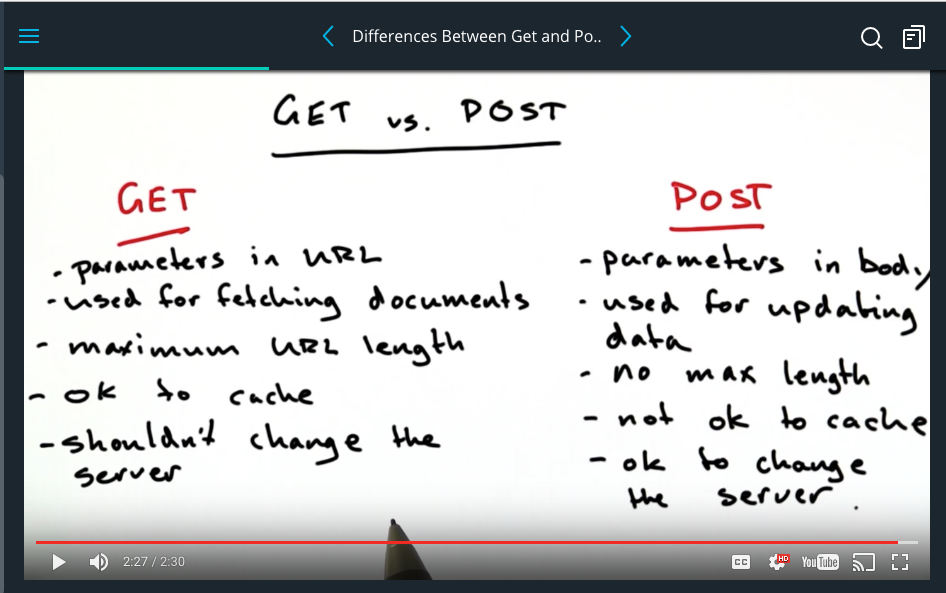 Differences Between Get and Po..
GET vs. POST
GET
- parameters in URL
- used for fetching documents
- maximum URL length
- ok to cache
- shouldn't change the
server
POST
- parameters in body
- used for updating
data
- no max length
- not ok to cache
- ok to change
the server.
2:27 / 2:30
CC
HD
YouTube